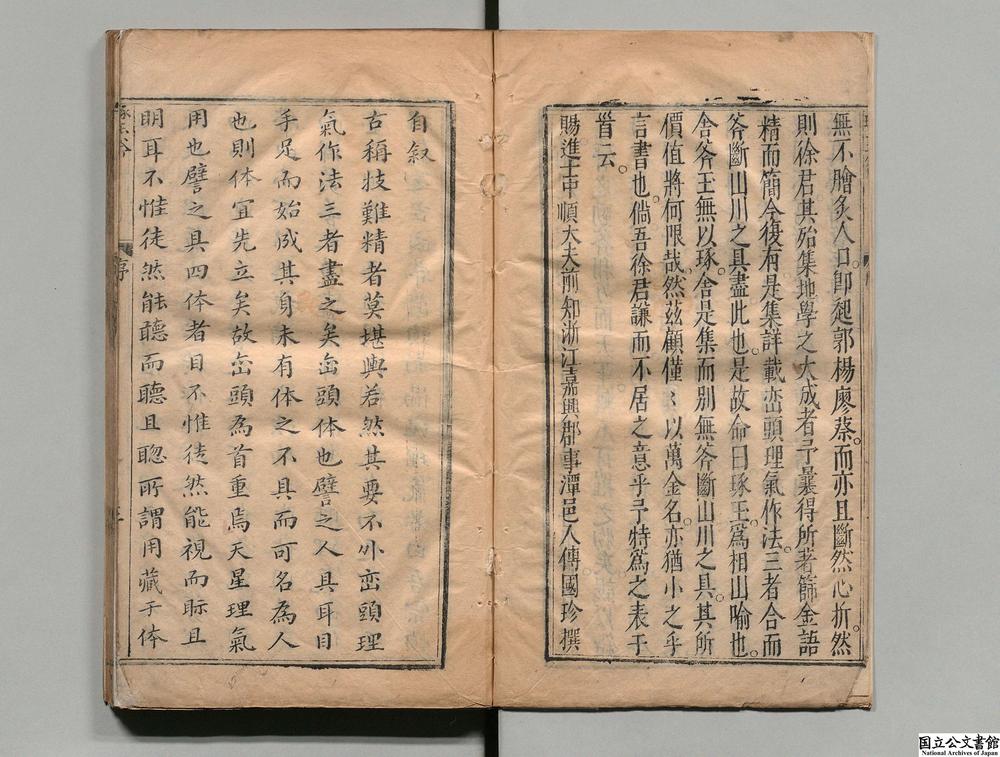 無不膾炙人口即起郭楊廖蔡。而亦且斷然心折。然
則徐君其殆集地學之大成者予曩得所著篩金語
精而簡今復有是集詳載峦頭理氣作法。三者合而
斧斷山川之具盡此也。是故命曰琢玉。爲相山喻也。
舍斧玉無以琢。舍是集而別無斧斷山川之具。其所
價值將何限哉。然茲顧僅〻以萬金名。亦猶小之乎
言書也。倘吾徐君謙而不居之意乎予特爲之表于
首云。
賜進士中順大夫前知浙江嘉興郡事潭邑人傅國珍撰
自叙
古稱技難精者莫堪輿若然其要不外峦頭理
氣作法三者盡之矣峦頭体也譬之人具耳目
手足而始成其身未有体之不具而可名為人
也則体宜先立矣故峦頭為首重焉天星理氣
用也譬之具四体者目不惟徒然能視而眎且
明耳不惟徒然能聽而聽且聦所謂用藏于体
琢玉斧
序
国立公文書館
National Archives of Japan